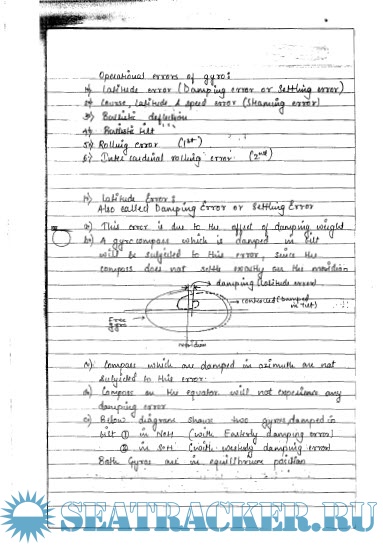 Operational errors of gyro:
1) Latitude error (Damping error or Settling error)
2) Course, Latitude & speed error (Steaming error)
3) Ballistic deflection
4) Ballistic tilt
5) Rolling error (1st)
6) Inter cardinal rolling error (2nd)
1) Latitude Error:
Also called Damping Error or Settling Error
a) This error is due to the offset of damping weight
b) A gyrocompass which is damped in tilt
will be subjected to this error, since the
compass does not settle exactly on the meridian
damping (latitude error)
controlled (damped
in tilt)
Free
gyro
meridian
Compass which are damped in azimuth are not
subjected to this error.
Compass on the equator will not experience any
damping error
Below diagram shows two gyros, damped in
tilt ① in NH (with Easterly damping error)
② in SH (with westerly damping error)
Both Gyros are in equilibrium position
SEATRACKER.RU